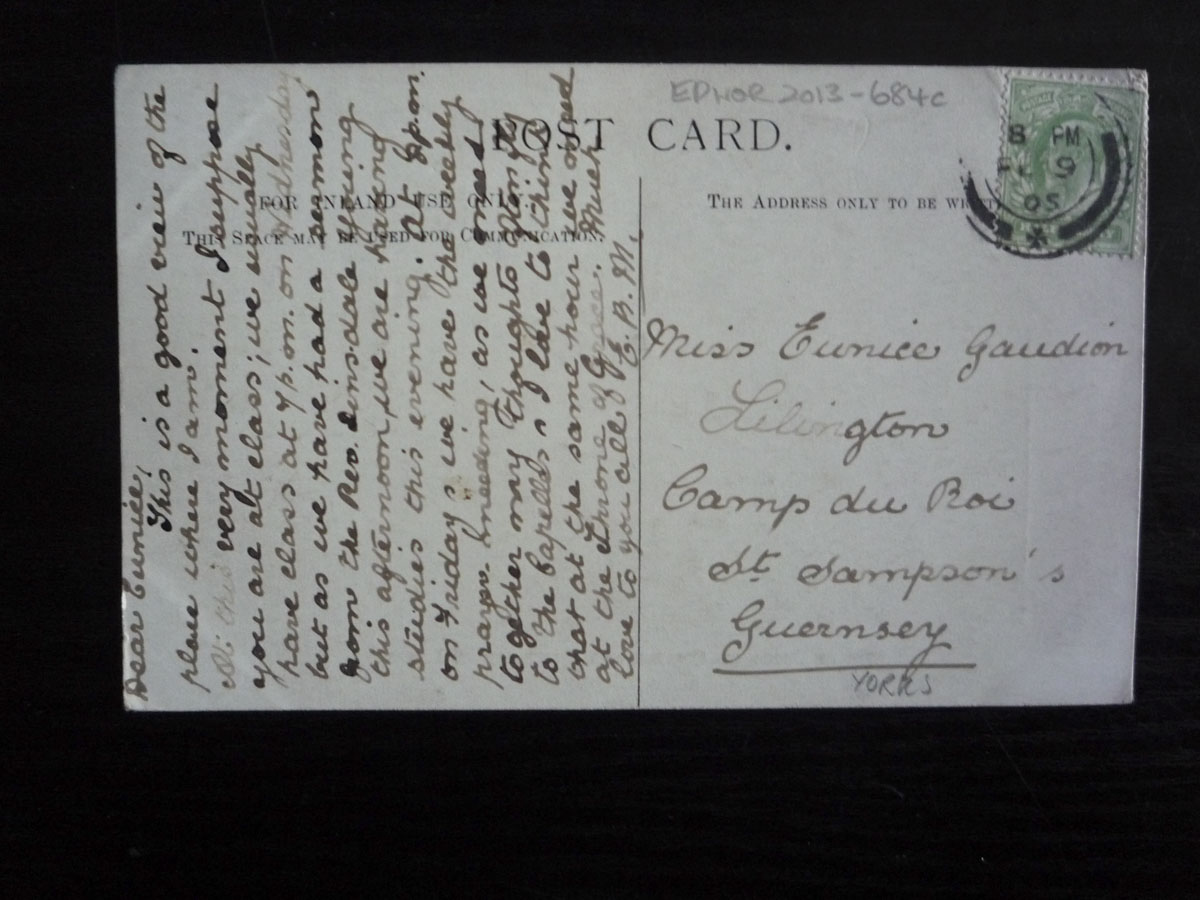 EDNOR 2013-684c
POST CARD.
FOR INLAND USE ONLY.
THIS SPACE MAY BE USED FOR COMMUNICATION.
THE ADDRESS ONLY TO BE WRITT
8 PM
9
05
Dear Eunice,
This is a good view of the
place where I am.
At this very moment I suppose
you are at class; we usually
have class at 7 p.m. on Wednesday
but as we have had a sermon
from the Rev. Dinsdale Young
this afternoon, we are having
studies this evening. At 6 p.m.
on Fridays we have the weekly
prayer meeting, as we kneel
together my thoughts often fly
to the Capelles & I love to think
that at the same hour we meet
at the Throne of Grace. Much
love to you all
E. B. M.
Miss Eunice Gaudion
Lilington
Camp du Roi
St Sampson's
Guernsey
YORKS